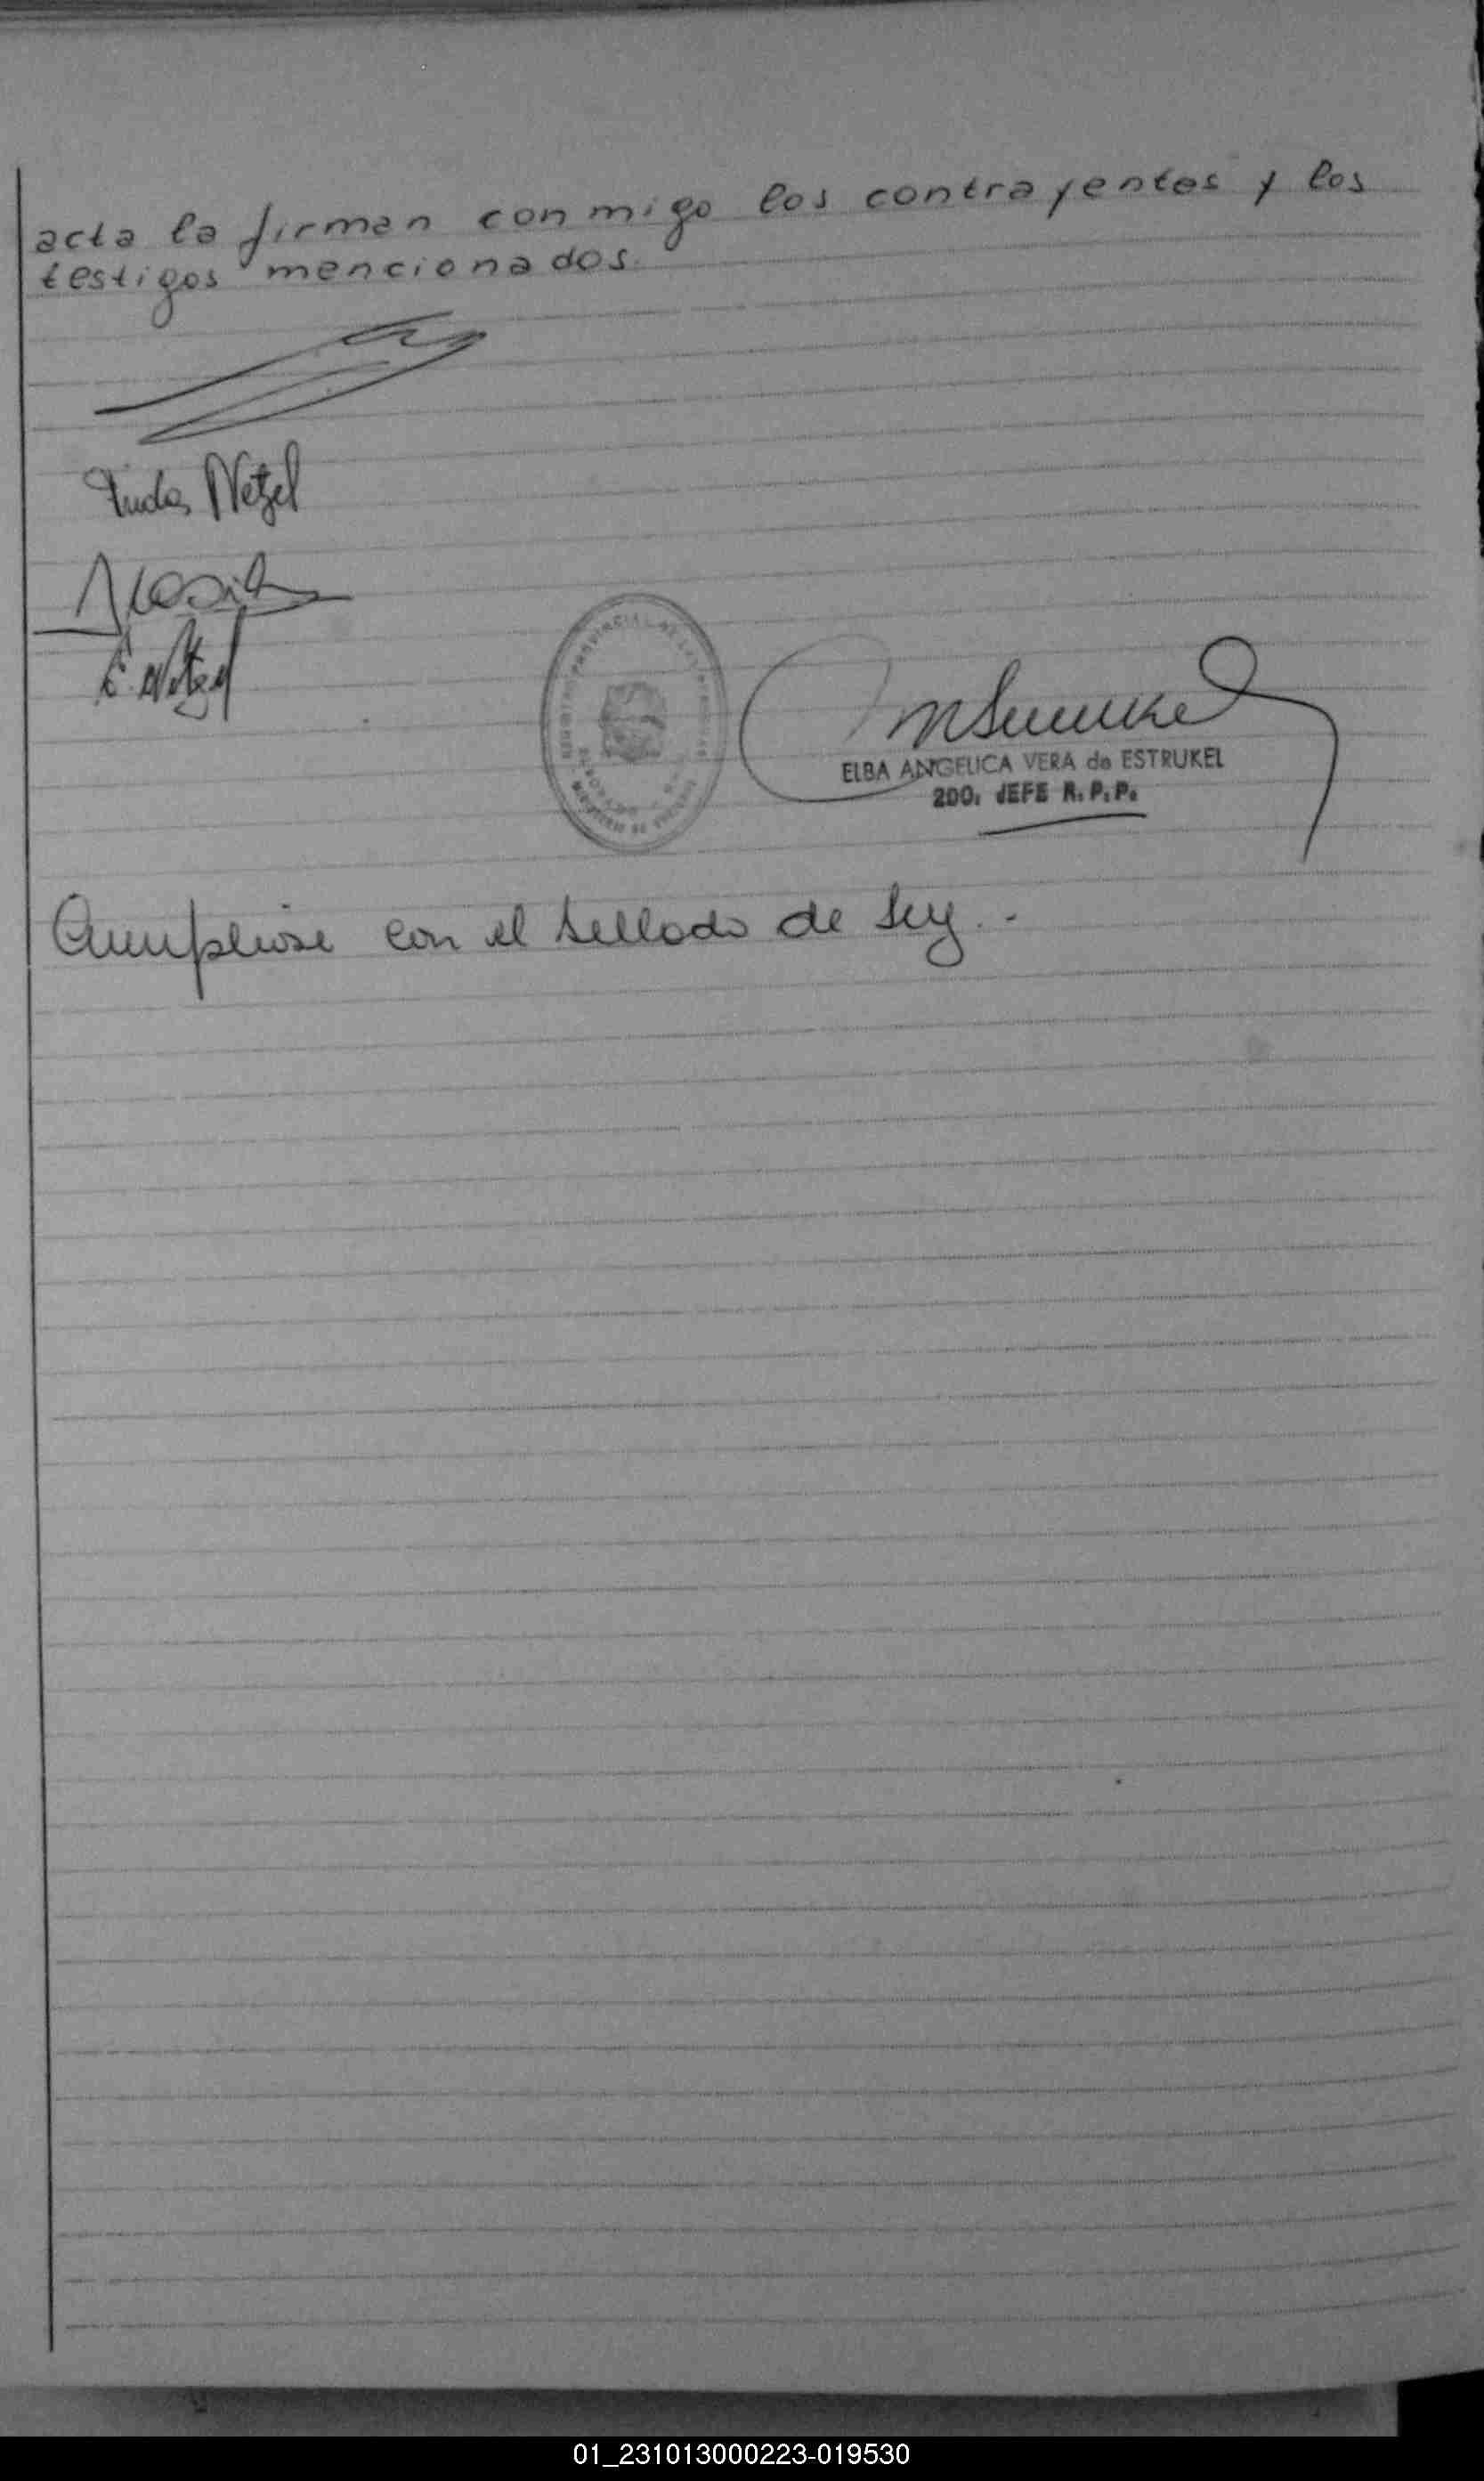 acta la firman conmigo los contrayentes y los
testigos mencionados.
Netzel
E. Netzel
PROVINCIAL DE LAS
ELBA ANGELICA VERA de ESTRUKEL
2DO. JEFE R.P.P.
Cumpliose con el sellado de ley.-
01_231013000223-019530